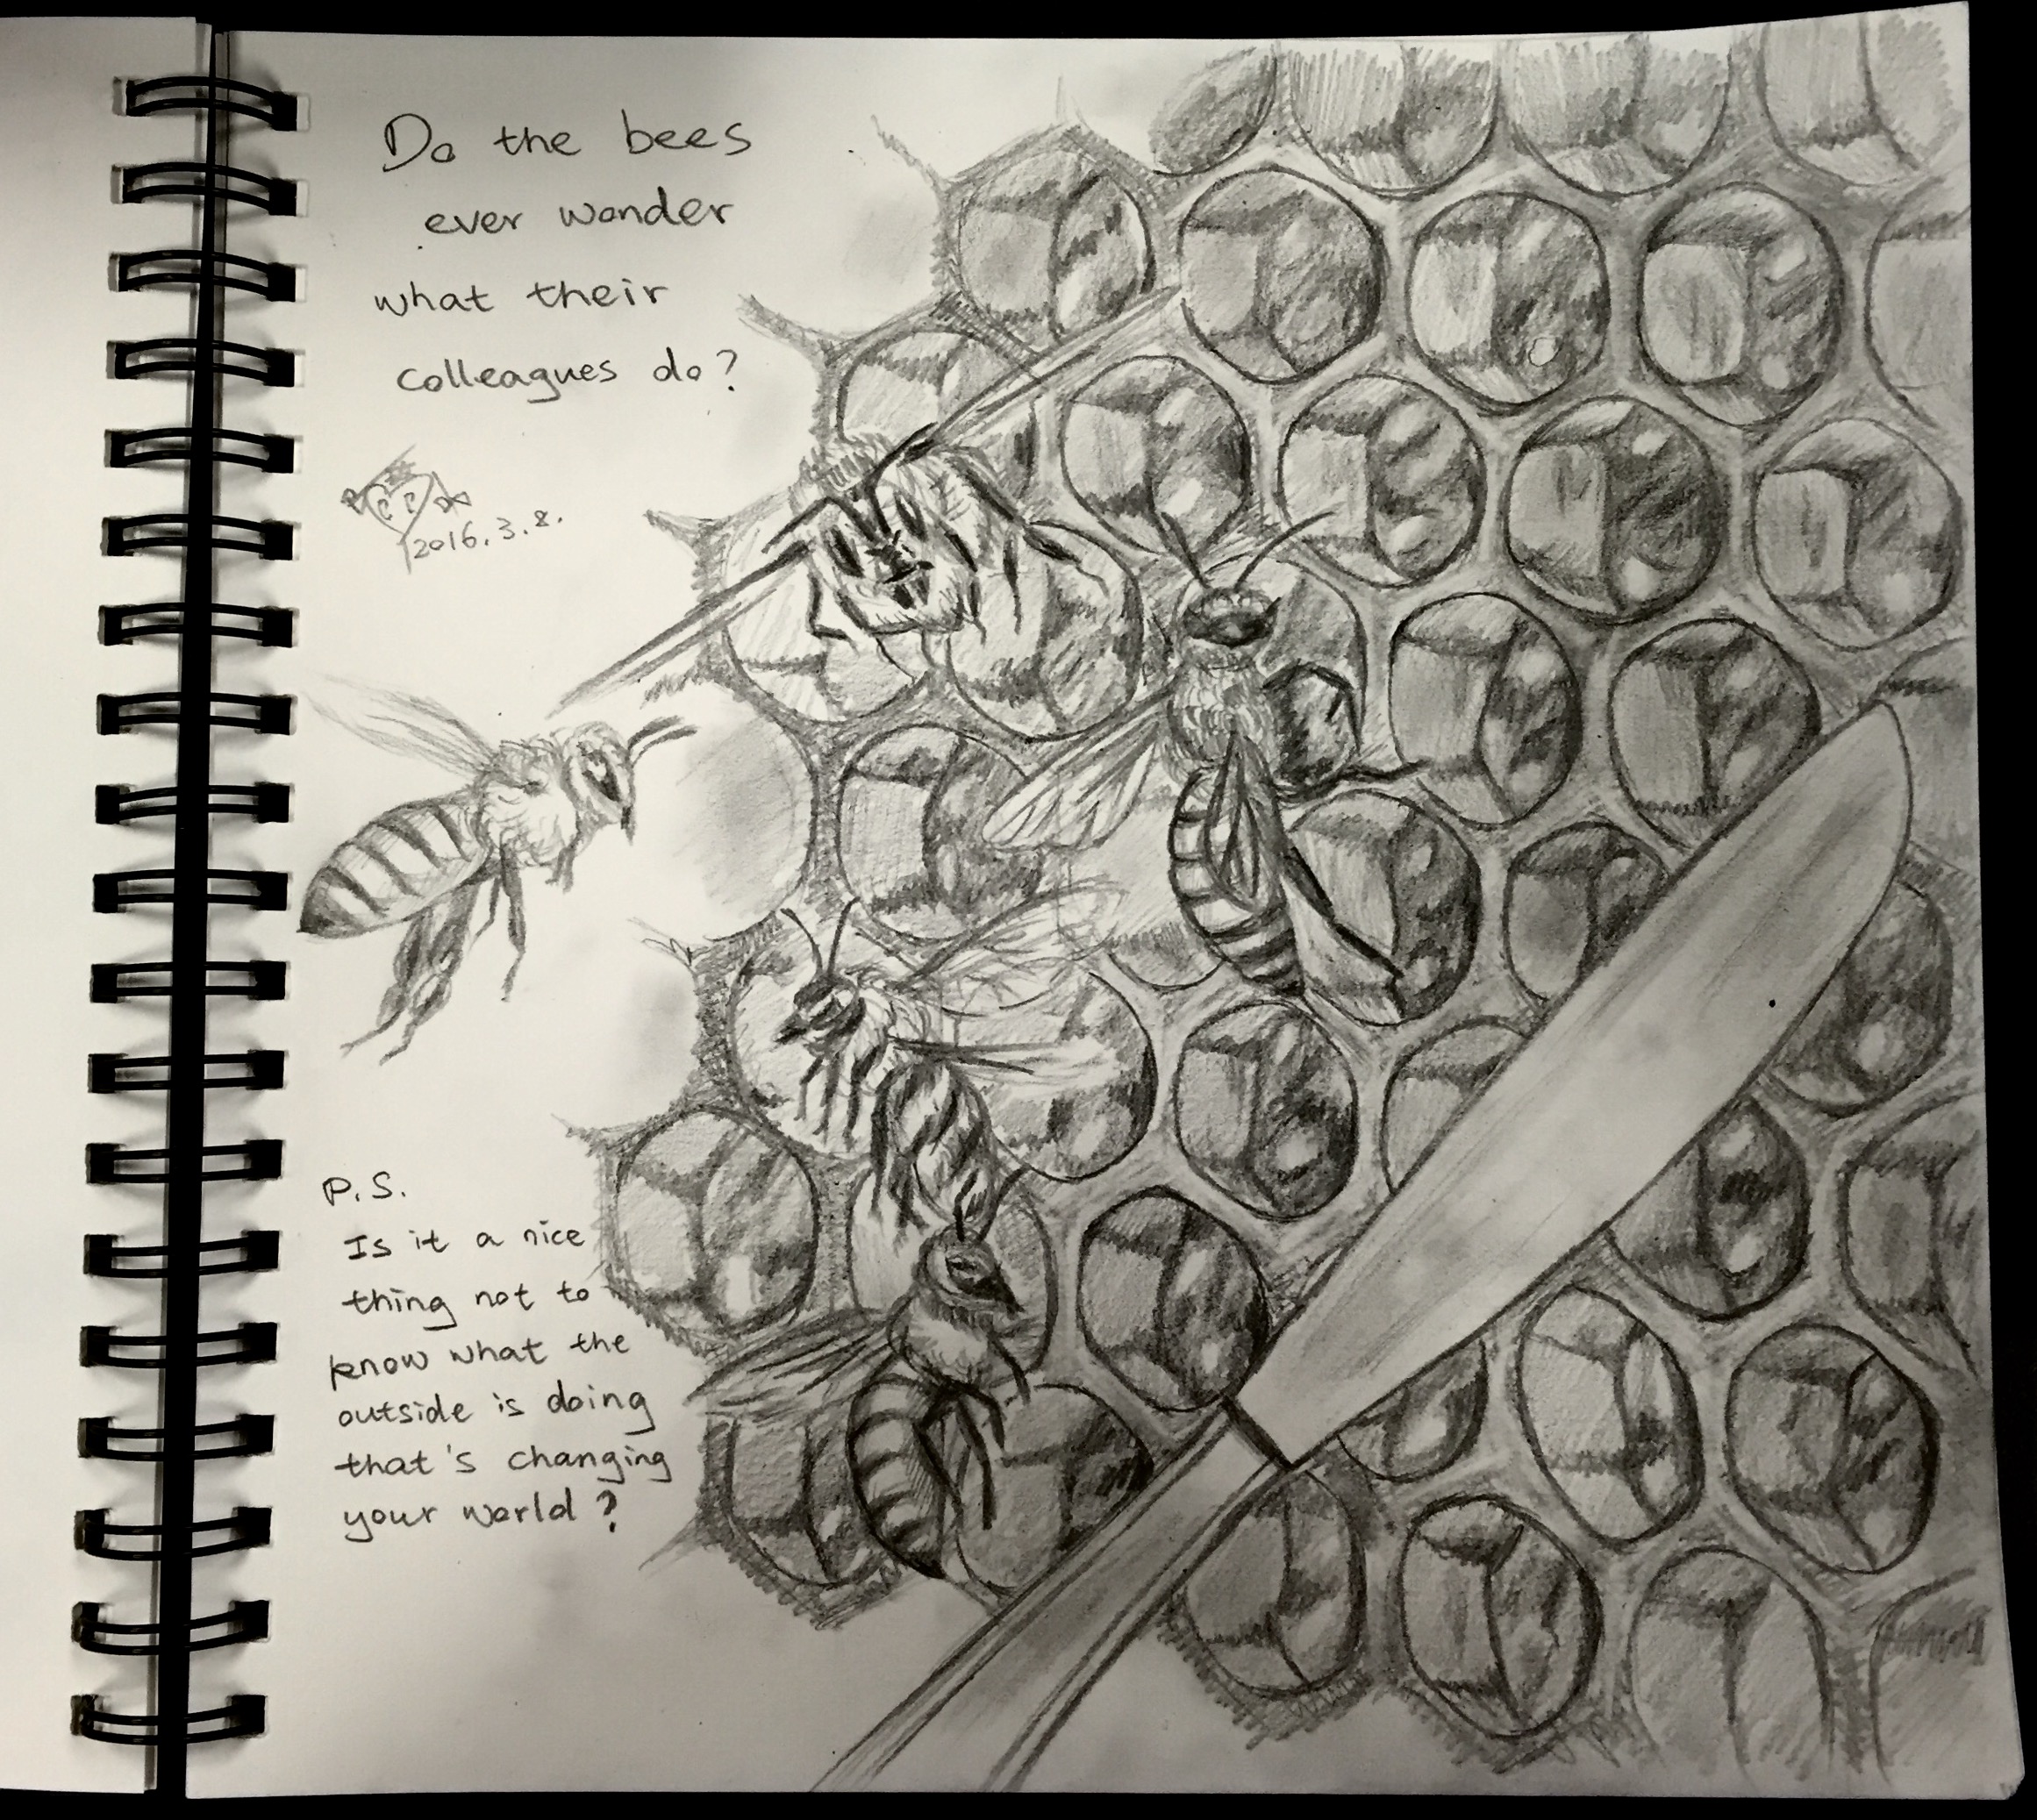 Do the bees
ever wonder
what their
colleagues do?
2016.3.8.
P.S.
Is it a nice
thing not to
know what the
outside is doing
that's changing
your world?